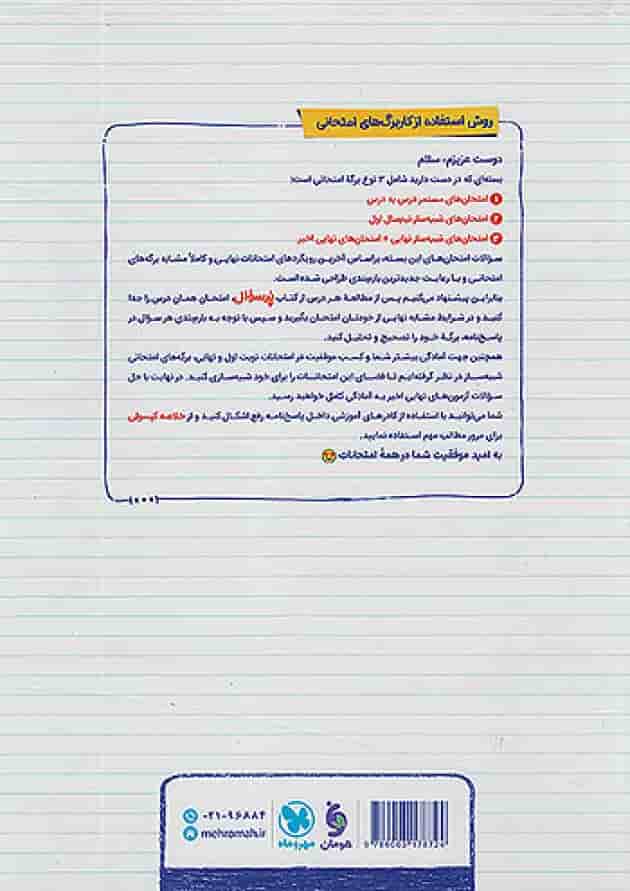 روش استفاده از کاربرگ‌های امتحانی
دوست عزیزم، سلام
بسته‌ای که در دست دارید شامل ۳ نوع برگهٔ امتحانی است:
۱ امتحان‌های مستمر درس به درس
۲ امتحان‌های شبه‌ساز نیم‌سال اول
۳ امتحان‌های شبه‌ساز نهایی + امتحان‌های نهایی اخیر
سؤالات امتحان‌های این بسته، براساس آخرین رویکردهای امتحانات نهایی و کاملاً مشابه برگه‌های
امتحانی و با رعایت جدیدترین بارم‌بندی طراحی شده است.
بنابراین پیشنهاد می‌کنیم پس از مطالعهٔ هر درس از کتاب پُرسؤال، امتحان همان درس را جدا
کنید و در شرایط مشابه نهایی از خودتان امتحان بگیرید و سپس با توجه به بارم‌بندی هر سؤال در
پاسخ‌نامه، برگهٔ خود را تصحیح و تحلیل کنید.
همچنین جهت آمادگی بیشتر شما و کسب موفقیت در امتحانات نوبت اول و نهایی، برگه‌های امتحانی
شبیه‌ساز در نظر گرفته‌ایم تا فضای این امتحانات را برای خود شبیه‌سازی کنید. در نهایت با حل
سؤالات آزمون‌های نهایی اخیر به آمادگی کامل خواهید رسید.
شما می‌توانید با استفاده از کادرهای آموزشی داخل پاسخ‌نامه رفع اشکال کنید و از خلاصه کپسولی
برای مرور مطالب مهم استفاده نمایید.
به امید موفقیت شما در همهٔ امتحانات
۰۲۱-۹۶۸۸۴
mehromah.ir
مهروماه
شومان